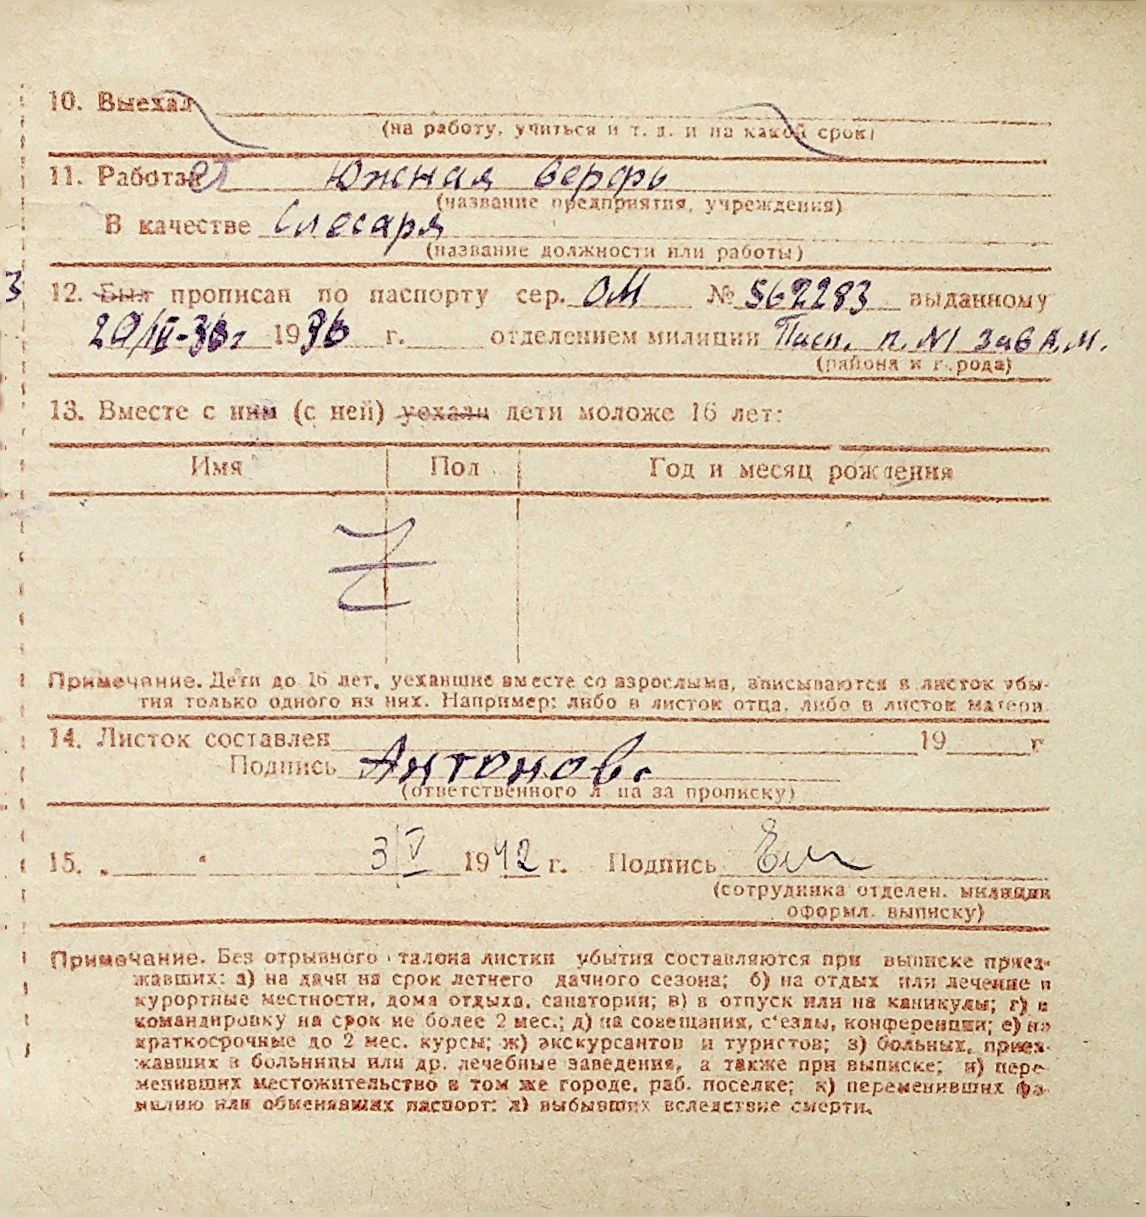 10. Выехал
(на работу, учиться и т. д. и на какой срок)
11. Работает Южная верфь
(название предприятия, учреждения)
В качестве Слесаря
(название должности или работы)
3
12. Был прописан по паспорту сер. ОМ № 562283 выданному
1936 г. отделением милиции Пасп. п. №1
(района и города)
13. Вместе с ним (с ней) уехали дети моложе 16 лет:
Имя Пол Год и месяц рождения
Z
Примечание. Дети до 16 лет, уехавшие вместе со взрослыми, записываются в листок убы-
тия только одного из них. Например: либо в листок отца, либо в листок матери.
14. Листок составлен 19 г
Подпись Антонов
(ответственного лица за прописку)
15. „ “ 3/V 1942 г. Подпись
(сотрудника отделен. милиции
оформл. выписку)
Примечание. Без отрывного талона листки убытия составляются при выписке приез-
жавших: а) на дачи на срок летнего дачного сезона; б) на отдых или лечение в
курортные местности, дома отдыха, санатории; в) в отпуск или на каникулы; г) в
командировку на срок не более 2 мес.; д) на совещания, с'езды, конференции; е) на
краткосрочные до 2 мес. курсы; ж) экскурсантов и туристов; з) больных, приез-
жавших в больницы или др. лечебные заведения, а также при выписке; и) пере-
менивших местожительство в том же городе, раб. поселке; к) переменивших фа-
милию или обменявших паспорт; л) выбывших вследствие смерти.